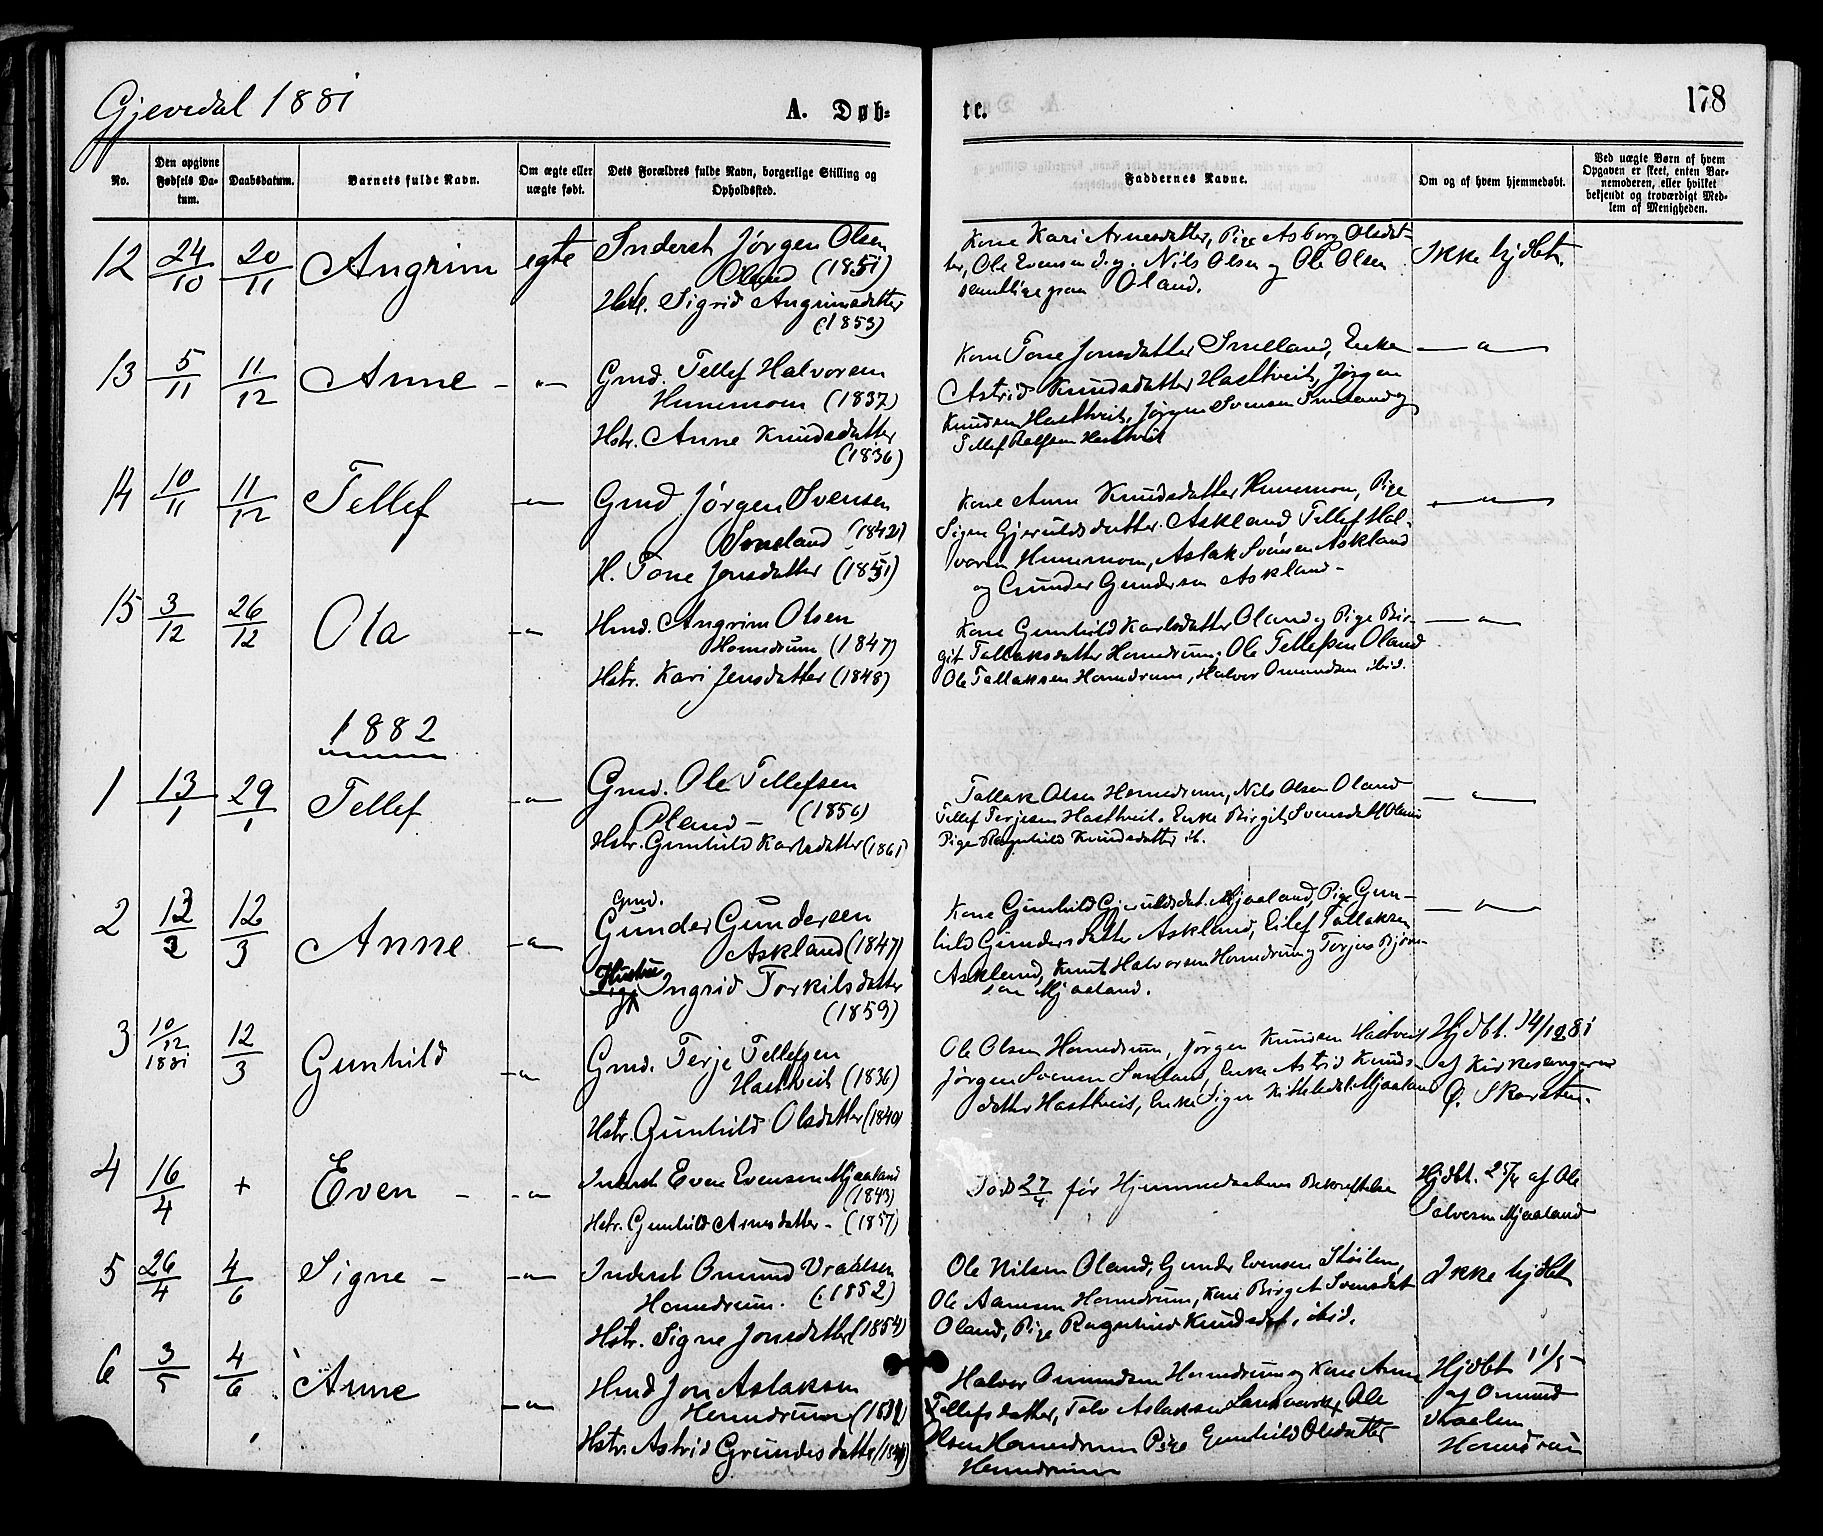 Gjevedal 1881
A. Døb-
te.
178
No.
Den opgivne Fødsels Da-tum.
Daabsdatum.
Barnets fulde Navn.
Om ægte eller uægte født.
Dets Forældres fulde Navn, borgerlige Stilling og Opholdssted.
Faddernes Navne.
Om og af hvem hjemmedøbt.
Ved uægte Børn af hvem Opgaven er skeet, enten Bar-nemoderen, eller hvilket bekjendt og troværdigt Med-lem af Menigheden.
12 24/10 20/11 Angrim egte Inderst Jørgen Olsen
Oland (1851)
Sigrid Angrimsdatter
(1853)
Kone Kari Arnesdatter, Pige Asborg Olsdat-
ter, Ole Evensen Nils Olsen og Ole Olsen
samtlige paa Oland.
Ikke hjdbt.
13 5/11 11/12 Anne - " - Gmd. Tellef Halvorsen
Hunemoen (1837)
Hstr. Anne Knudsdatter
(1836)
Kone Tone Jonsdatter Smeland, Enke
Astrid Knudsdatter Hasthveit, Jørgen
Knudsen Hasthveit, Jørgen Svensen Smeland og
Tellef Hasthveit
- " -
14 10/11 11/12 Tellef - " - Gmd Jørgen Svensen
Smeland (1842)
H. Tone Jonsdatter (1851)
Kone Anne Knudsdatter Hunemoen, Pige
Signe Gjeruldsdatter Askland Tellef Hal-
vorsen Hunemoen, Aslak Svensen Askland
og Gunder Gundersen Askland -
- " -
15 3/12 26/12 Ola - " - Hmd. Angrim Olsen
Homdrum (1847)
Hstr. Kari Jensdatter (1848)
Kone Gunhild Karlsdatter Oland og Pige Bir-
git Tallaksdatter Homdrum, Ole Tellefsen Oland
Ole Tallaksen Homdrum, Halvor Omundsen ibid.
- " -
1882
1 13/1 29/1 Tellef - " - Gmd. Ole Tellefsen
Oland - (1856)
Hstr. Gunhild Karlsdatter (1861)
Tallak Olsen Homdrum, Nils Olsen Oland
Tellef Terjesen Hasthveit. Enke Birgit Svensdatt Oland
Pige Ragnhild Knudsdatter ib.
- " -
2 13/2 12/3 Anne - " - Gmd.
Gunder Gundersen
Askland (1847)
Hustru
Ingrid Torkilsdatter
(1859)
Kone Gunhild Gjeruldsdat. Mjaaland, Pige Gun-
hild Gundersdatter Askland, Eilef Tallaksen
Askland, Knut Halvorsen Homdrum og Terjus Bjørn-
sen Mjaaland.
- " -
3 10/12 1881 12/3 Gunhild - " - Gmd. Terje Tellefsen
Hasthveit (1836)
Hstr. Gunhild Olsdatter (1840)
Ole Olsen Homdrum, Jørgen Knudsen Hasthveit
Jørgen Svensen Smeland, Enke Astrid Knuds-
datter Hasthveit, Enke Signe Kittelsdat. Mjaaland
Hjdbt. 14/12 81
af Kirkesanger
O. Skarsten.
4 16/4 + Even - - " Inderst Even Evensen Mjaaland
(1843)
Hstr. Gunhild Arnesdatter - (1857)
Død 27/4 før Hjemmedaabens Bekræftelse
Hjdbt. 25/4 af Ole
Salvesen Mjaaland
5 26/4 4/6 Signe - - " - Inderst Omund Vraalsen
Homdrum. (1852)
Hstr. Signe Jonsdatter (1854)
Ole Nilsen Oland, Gunder Evensen Støilen,
Ole Aamsen Homdrum, Kone Birget Svensdat
Oland, Pige Ragnhild Knudsdat. ibid.
Ikke hjdbt
6 3/5 4/6 Anne - " - Hmd Jon Aslaksen
Homdrum
Hstr. Astrid
Halvor Omundsen Homdrum og Kone Anne
Tellefsdatter, Talv Aslaksen Ole
Olsen Homdrum Pige Gunhild Olsdatter
Homdrum
Hjdbt 11/5
af Omund
Vraalsen
Homdrum